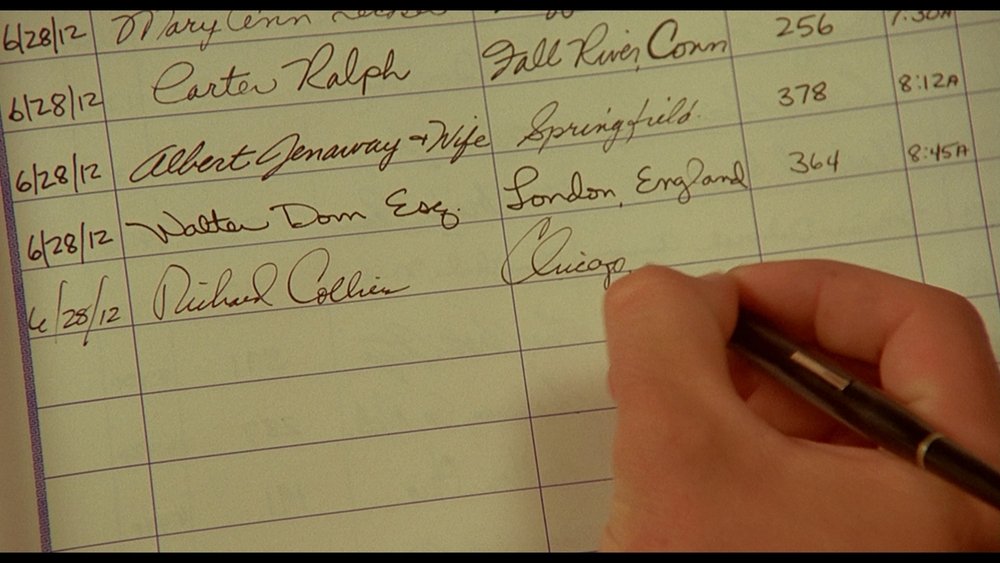 6/28/12 Mary Ann 256 7:30A
6/28/12 Carter Ralph Fall River, Conn 378 8:12A
6/28/12 Albert Jenaway + Wife Springfield. 364 8:45A
6/28/12 Walter Dorn Esq. London, England
6/28/12 Richard Collier Chicago,